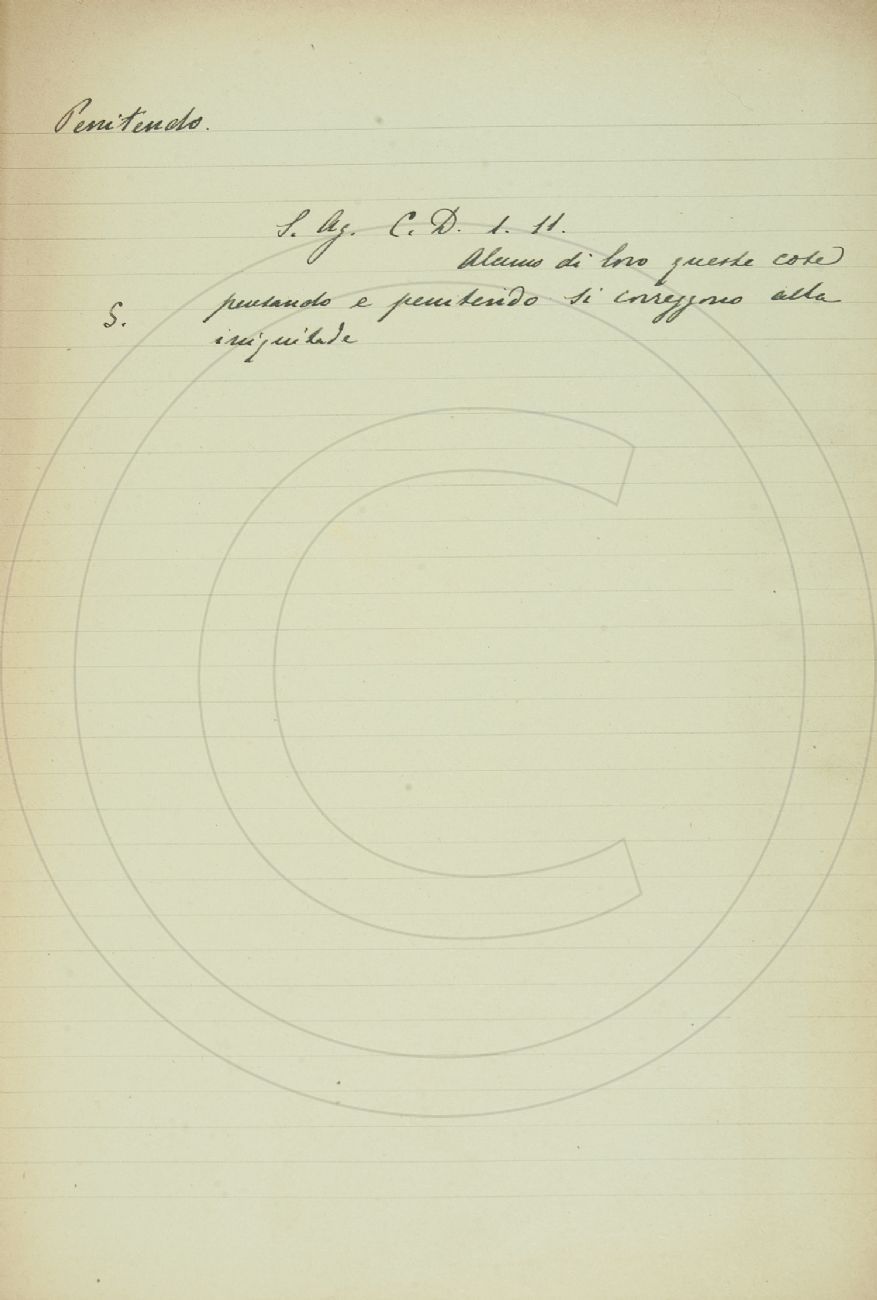 Penitendo.
S. Ag. C. D. 1. 11.
Alcuno di loro queste cose
S. pensando e penitendo si correggono alla
iniquitade